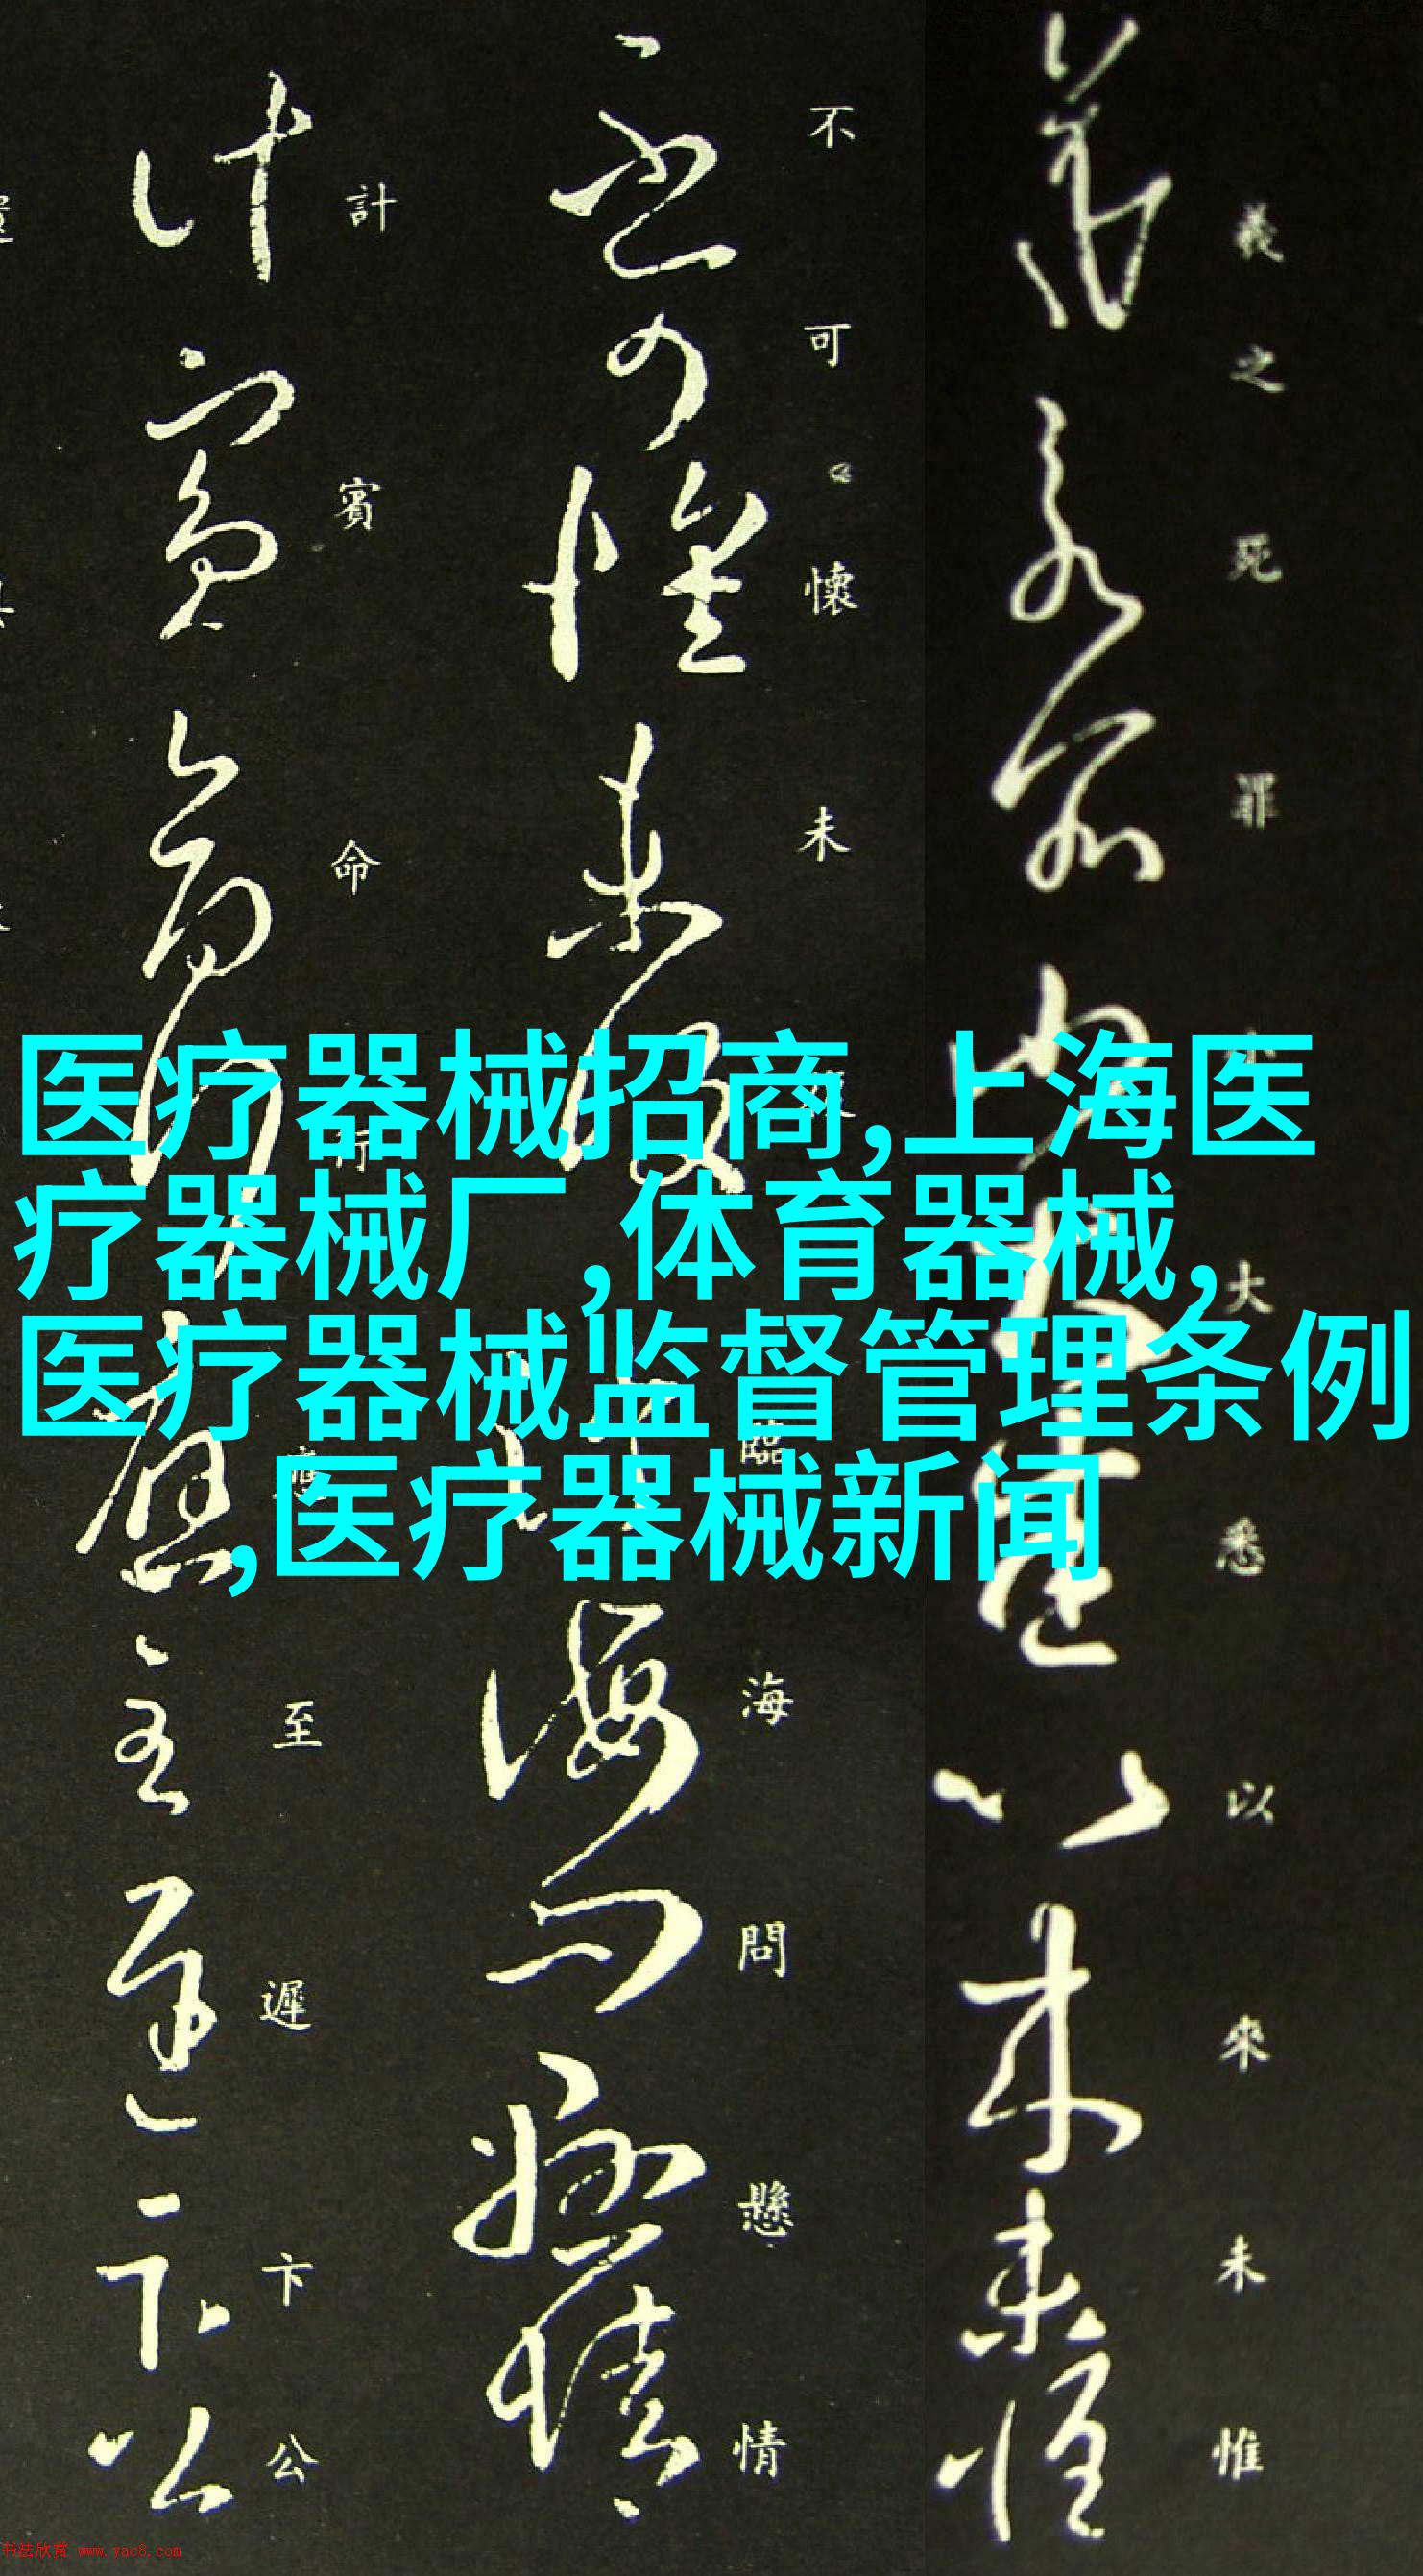 義之死罪大悉以來未惟
不可懷未臨海問懸情
計賓命行應至遲卞公
医疗器械招商,上海医
疗器械厂,体育器械,
医疗器械监督管理条例
,医疗器械新闻
书法欣赏 www.yac8.com